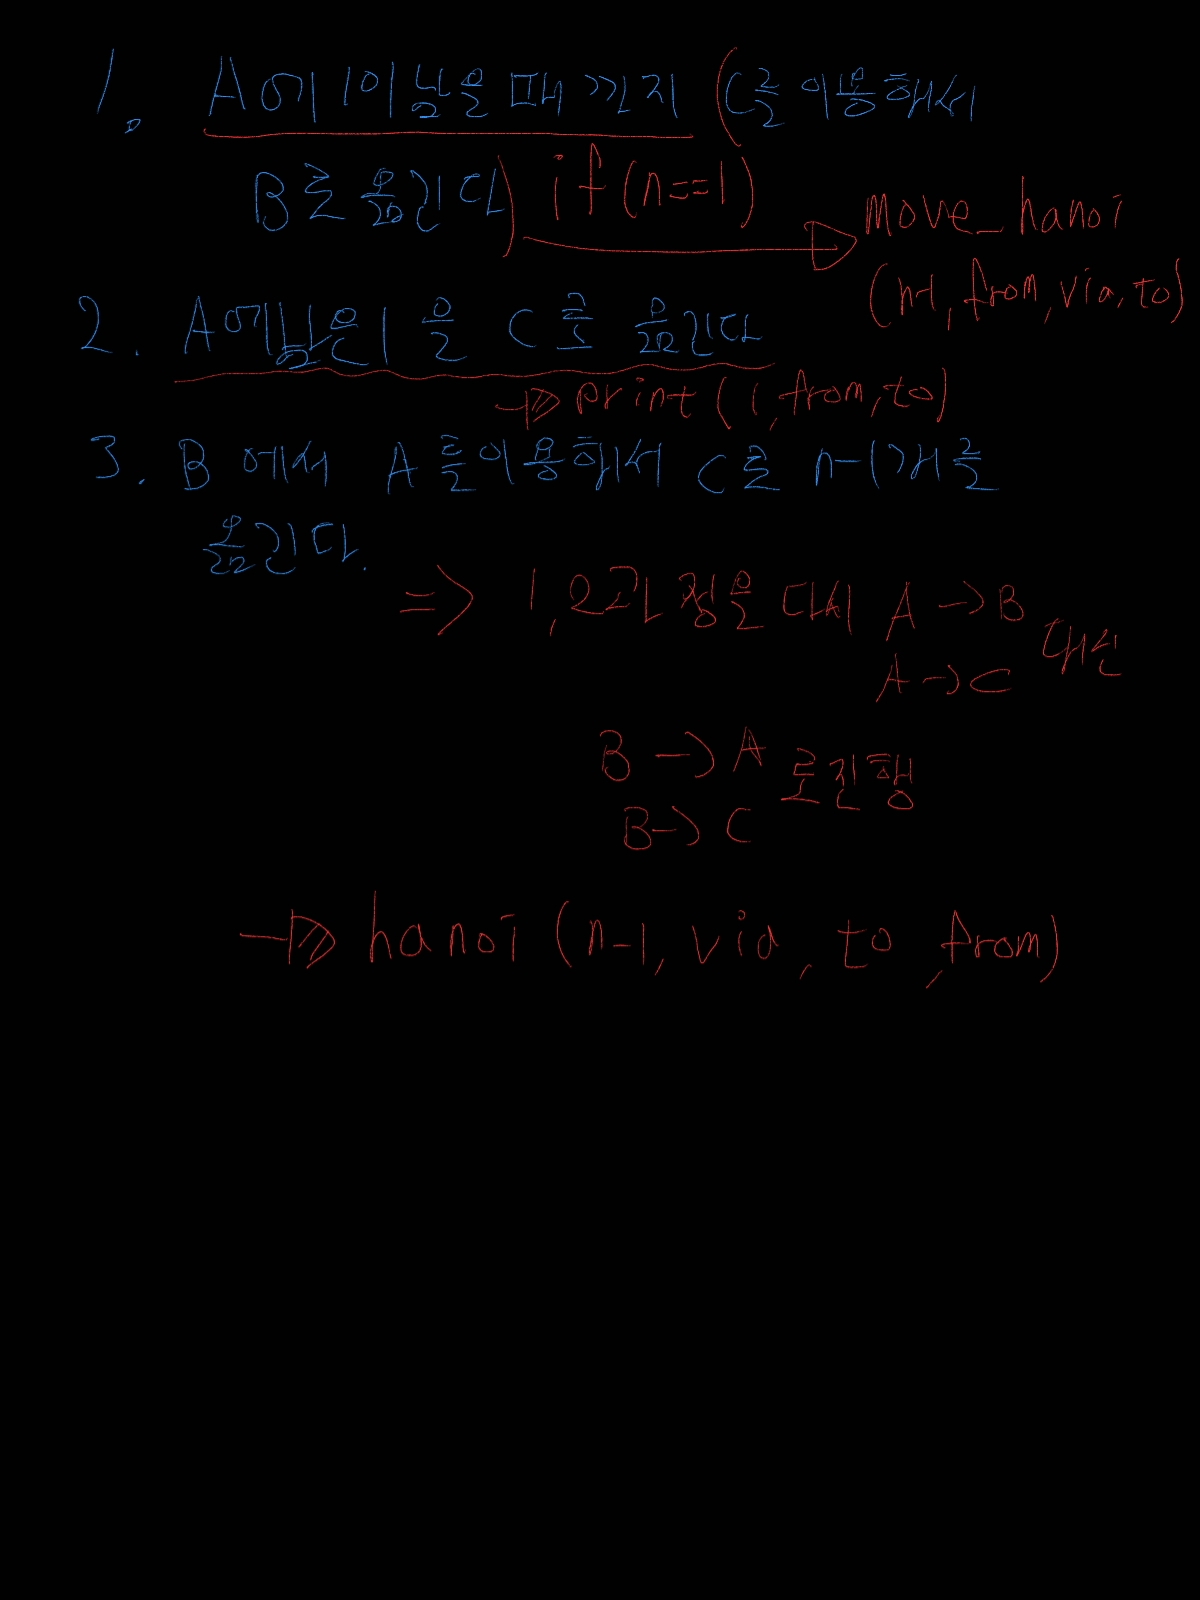 1. A에 1이 남을 때 까지 (C를 이용해서
B로 옮긴다) if (n==1)
move_hanoi
(n-1, from, via, to)
2. A에 남은 1 을 C로 옮긴다
print (1, from, to)
3. B 에서 A 를 이용해서 C로 n-1개를
옮긴다.
=> 1, 2과정을 다시 A -> B
대신
A -> C
B -> A 로 진행
B -> C
hanoi (n-1, via, to, from)